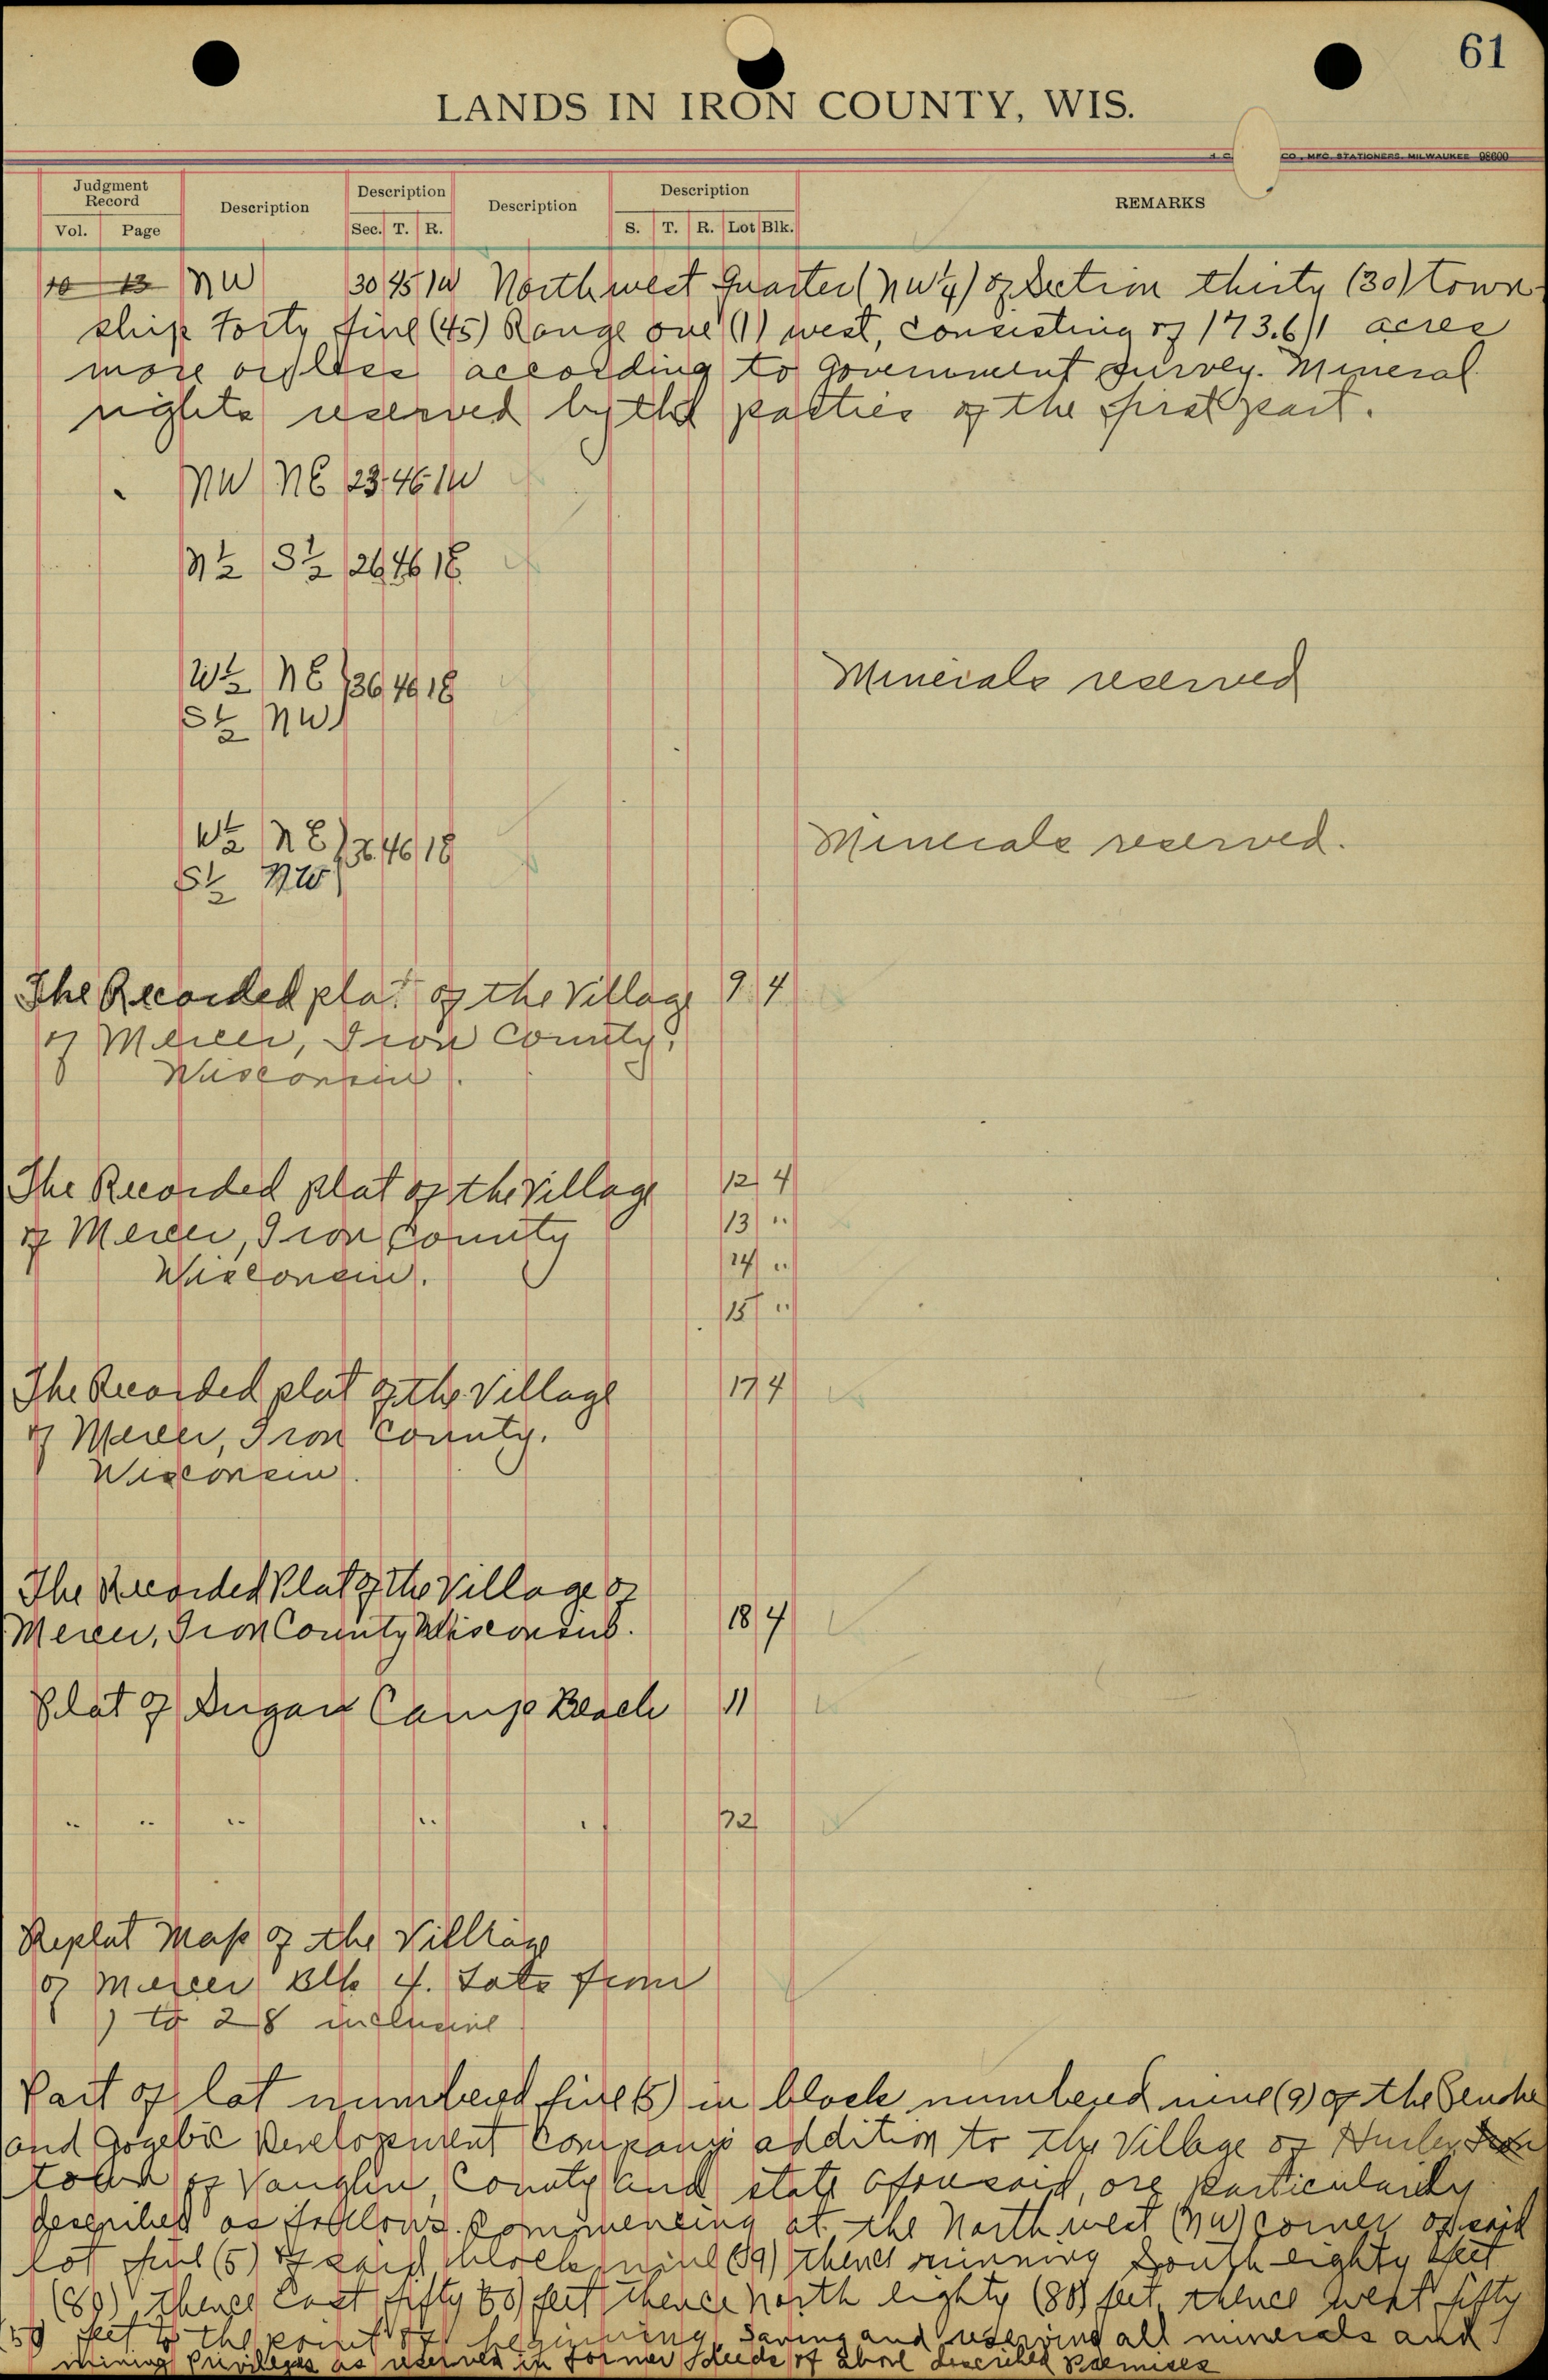 61
LANDS IN IRON COUNTY, WIS.
CO., MFG. STATIONERS, MILWAUKEE 98600
Judgment Record Description Description Description Description REMARKS
Vol. Page Sec. T. R. S. T. R. Lot Blk.
10 13 NW 30 45 1W Northwest Quarter (NW¼) of Section thirty (30) town-
ship Forty five (45) Range one (1) west, consisting of 173.61 acres
more or less according to government survey. Mineral
rights reserved by the parties of the first part.
NW NE 23 46 1W
N½ S½ 26 46 1E
W½ NE } 36 46 1E Minerals reserved
S½ NW
W½ NE } 36 46 1E Minerals reserved.
S½ NW
The Recorded plat of the Village 9 4
of Mercer, Iron County,
Wisconsin.
The Recorded plat of the Village 12 4
of Mercer, Iron County 13 "
Wisconsin. 14 "
15 "
The Recorded plat of the Village 17 4
of Mercer, Iron County.
Wisconsin.
The Recorded Plat of the Village of
Mercer, Iron County Wisconsin. 18 4
Plat of Sugar Camp Beach 11
" " " " " 72
Replat Map of the Village
of Mercer Blk 4. Lots from
1 to 28 inclusive
Part of lot numbered five (5) in block numbered nine (9) of the
and Gogebic Development Companys addition to the Village of Hurley
town of Vaughn, County and state aforesaid, particularly
described as follows. Commencing at the North west (NW) corner of said
lot five (5) of said block nine (9) thence running South eighty feet
(80), thence East fifty (50) feet thence north eighty (80) feet, thence west fifty
(50 feet to the point of beginning, saving and reserving all minerals and
mining privileges as reserved in former deeds of above described premises